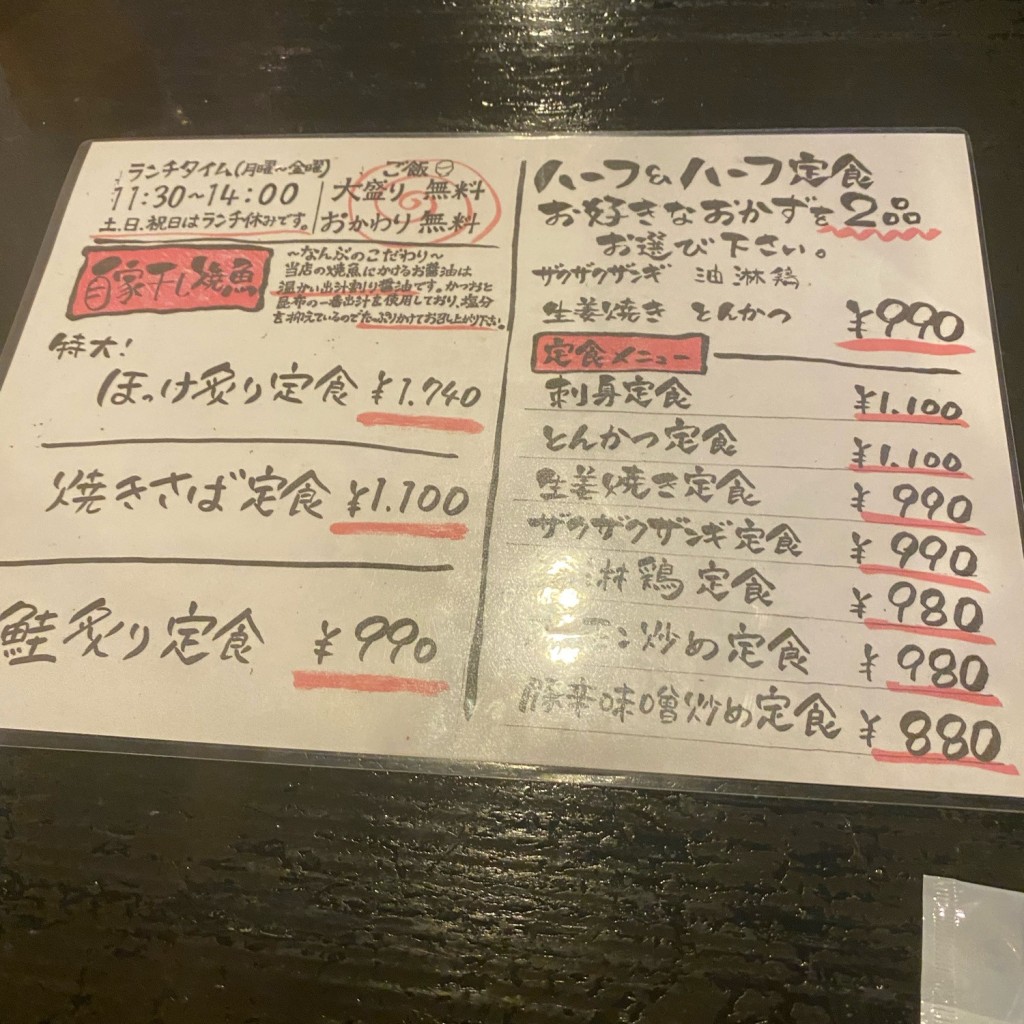 ランチタイム(月曜〜金曜)
11:30〜14:00
土、日、祝日はランチ休みです。
ご飯
大盛り 無料
おかわり 無料
自家干し焼魚
〜なんぶのこだわり〜
当店の焼魚にかけるお醤油は
温かい出汁割り醤油です。かつおと
昆布の一番出汁を使用しており、塩分
を抑えているのでたっぷりかけてお召し上がり下さい。
特大!
ほっけ炙り定食 ¥1.740
焼きさば定食 ¥1.100
鮭炙り定食 ¥990
ハーフ&ハーフ定食
お好きなおかずを2品
お選び下さい。
ザクザクザンギ 油淋鶏
生姜焼き とんかつ ¥990
定食メニュー
刺身定食 ¥1.100
とんかつ定食 ¥1.100
生姜焼き定食 ¥990
ザクザクザンギ定食 ¥990
淋鶏定食 ¥980
炒め定食 ¥980
豚辛味噌炒め定食 ¥880